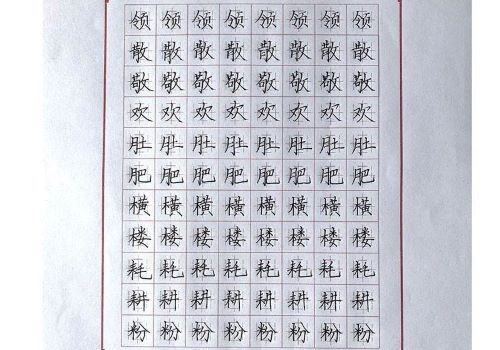 领 领 领 领 领 领 领 领
散 散 散 散 散 散 散 散
敬 敬 敬 敬 敬 敬 敬 敬
欢 欢 欢 欢 欢 欢 欢 欢
肚 肚 肚 肚 肚 肚 肚 肚
肥 肥 肥 肥 肥 肥 肥 肥
横 横 横 横 横 横 横 横
楼 楼 楼 楼 楼 楼 楼 楼
耗 耗 耗 耗 耗 耗 耗 耗
耕 耕 耕 耕 耕 耕 耕 耕
粉 粉 粉 粉 粉 粉 粉 粉